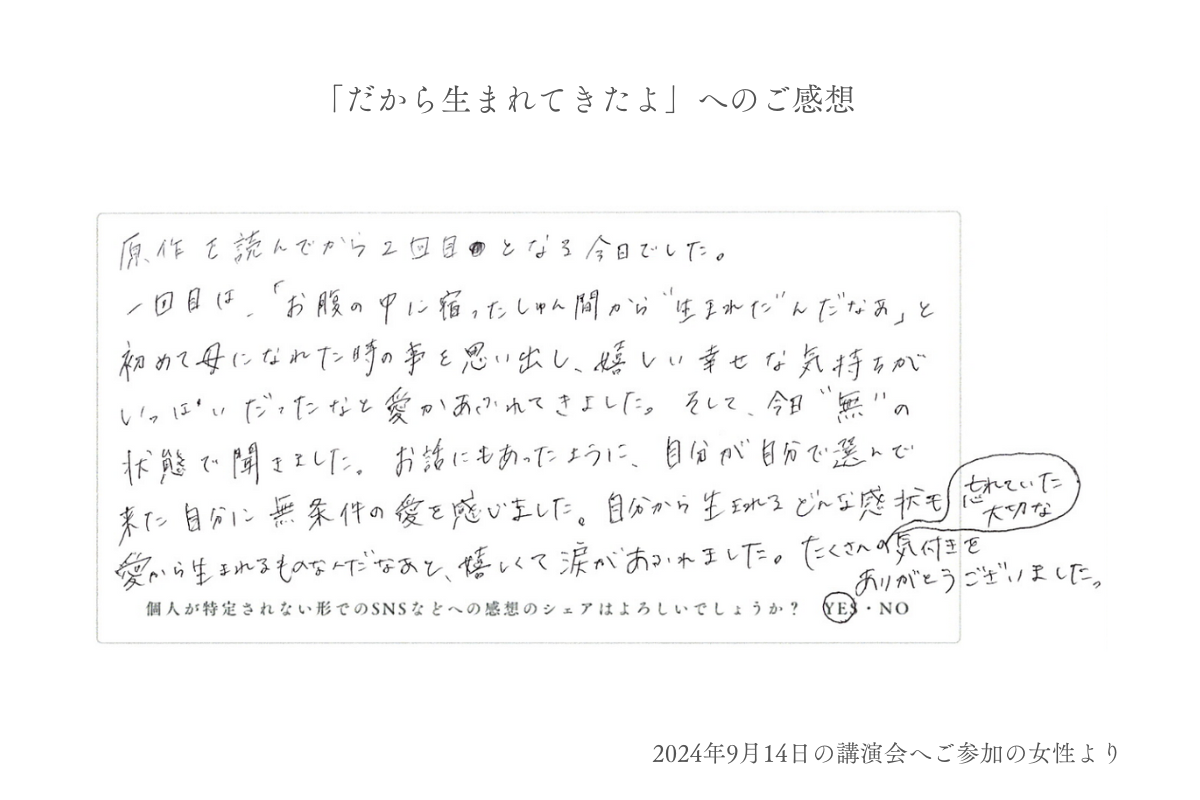 「だから生まれてきたよ」へのご感想
原作を読んでから2回目となる今日でした。
一回目は、「お腹の中に宿ったしゅん間から“生まれだ”んだなぁ」と
初めて母になれた時の事を思い出し、嬉しい幸せな気持ちが
いっぱいだったなと愛があふれてきました。そして、今日“無”の
状態で聞きました。お話にもあったように、自分が自分で選んで
来た自分に無条件の愛を感じました。自分から生まれるどんな感状も
愛から生まれるものなんだなあと、嬉しくて涙があふれました。たくさんの気付きを
忘れていた
大切な
ありがとうございました。
個人が特定されない形でのSNSなどへの感想のシェアはよろしいでしょうか？ YES・NO
2024年9月14日の講演会へご参加の女性より